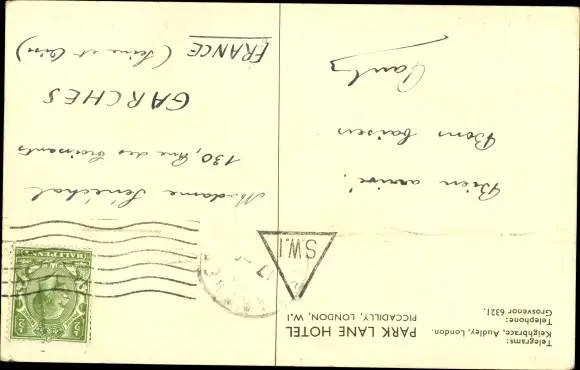 PARK LANE HOTEL
PICCADILLY, LONDON, W.I
Telegrams:
Keighbrace, Audley, London.
Telephone:
Grosvenor 6321.
Bien arrivé!
Bons baisers
S.W.1
17
HALFPENNY
Madame Sénéchal
130, Rue des Croissants
GARCHES
FRANCE (Seine et Oise)